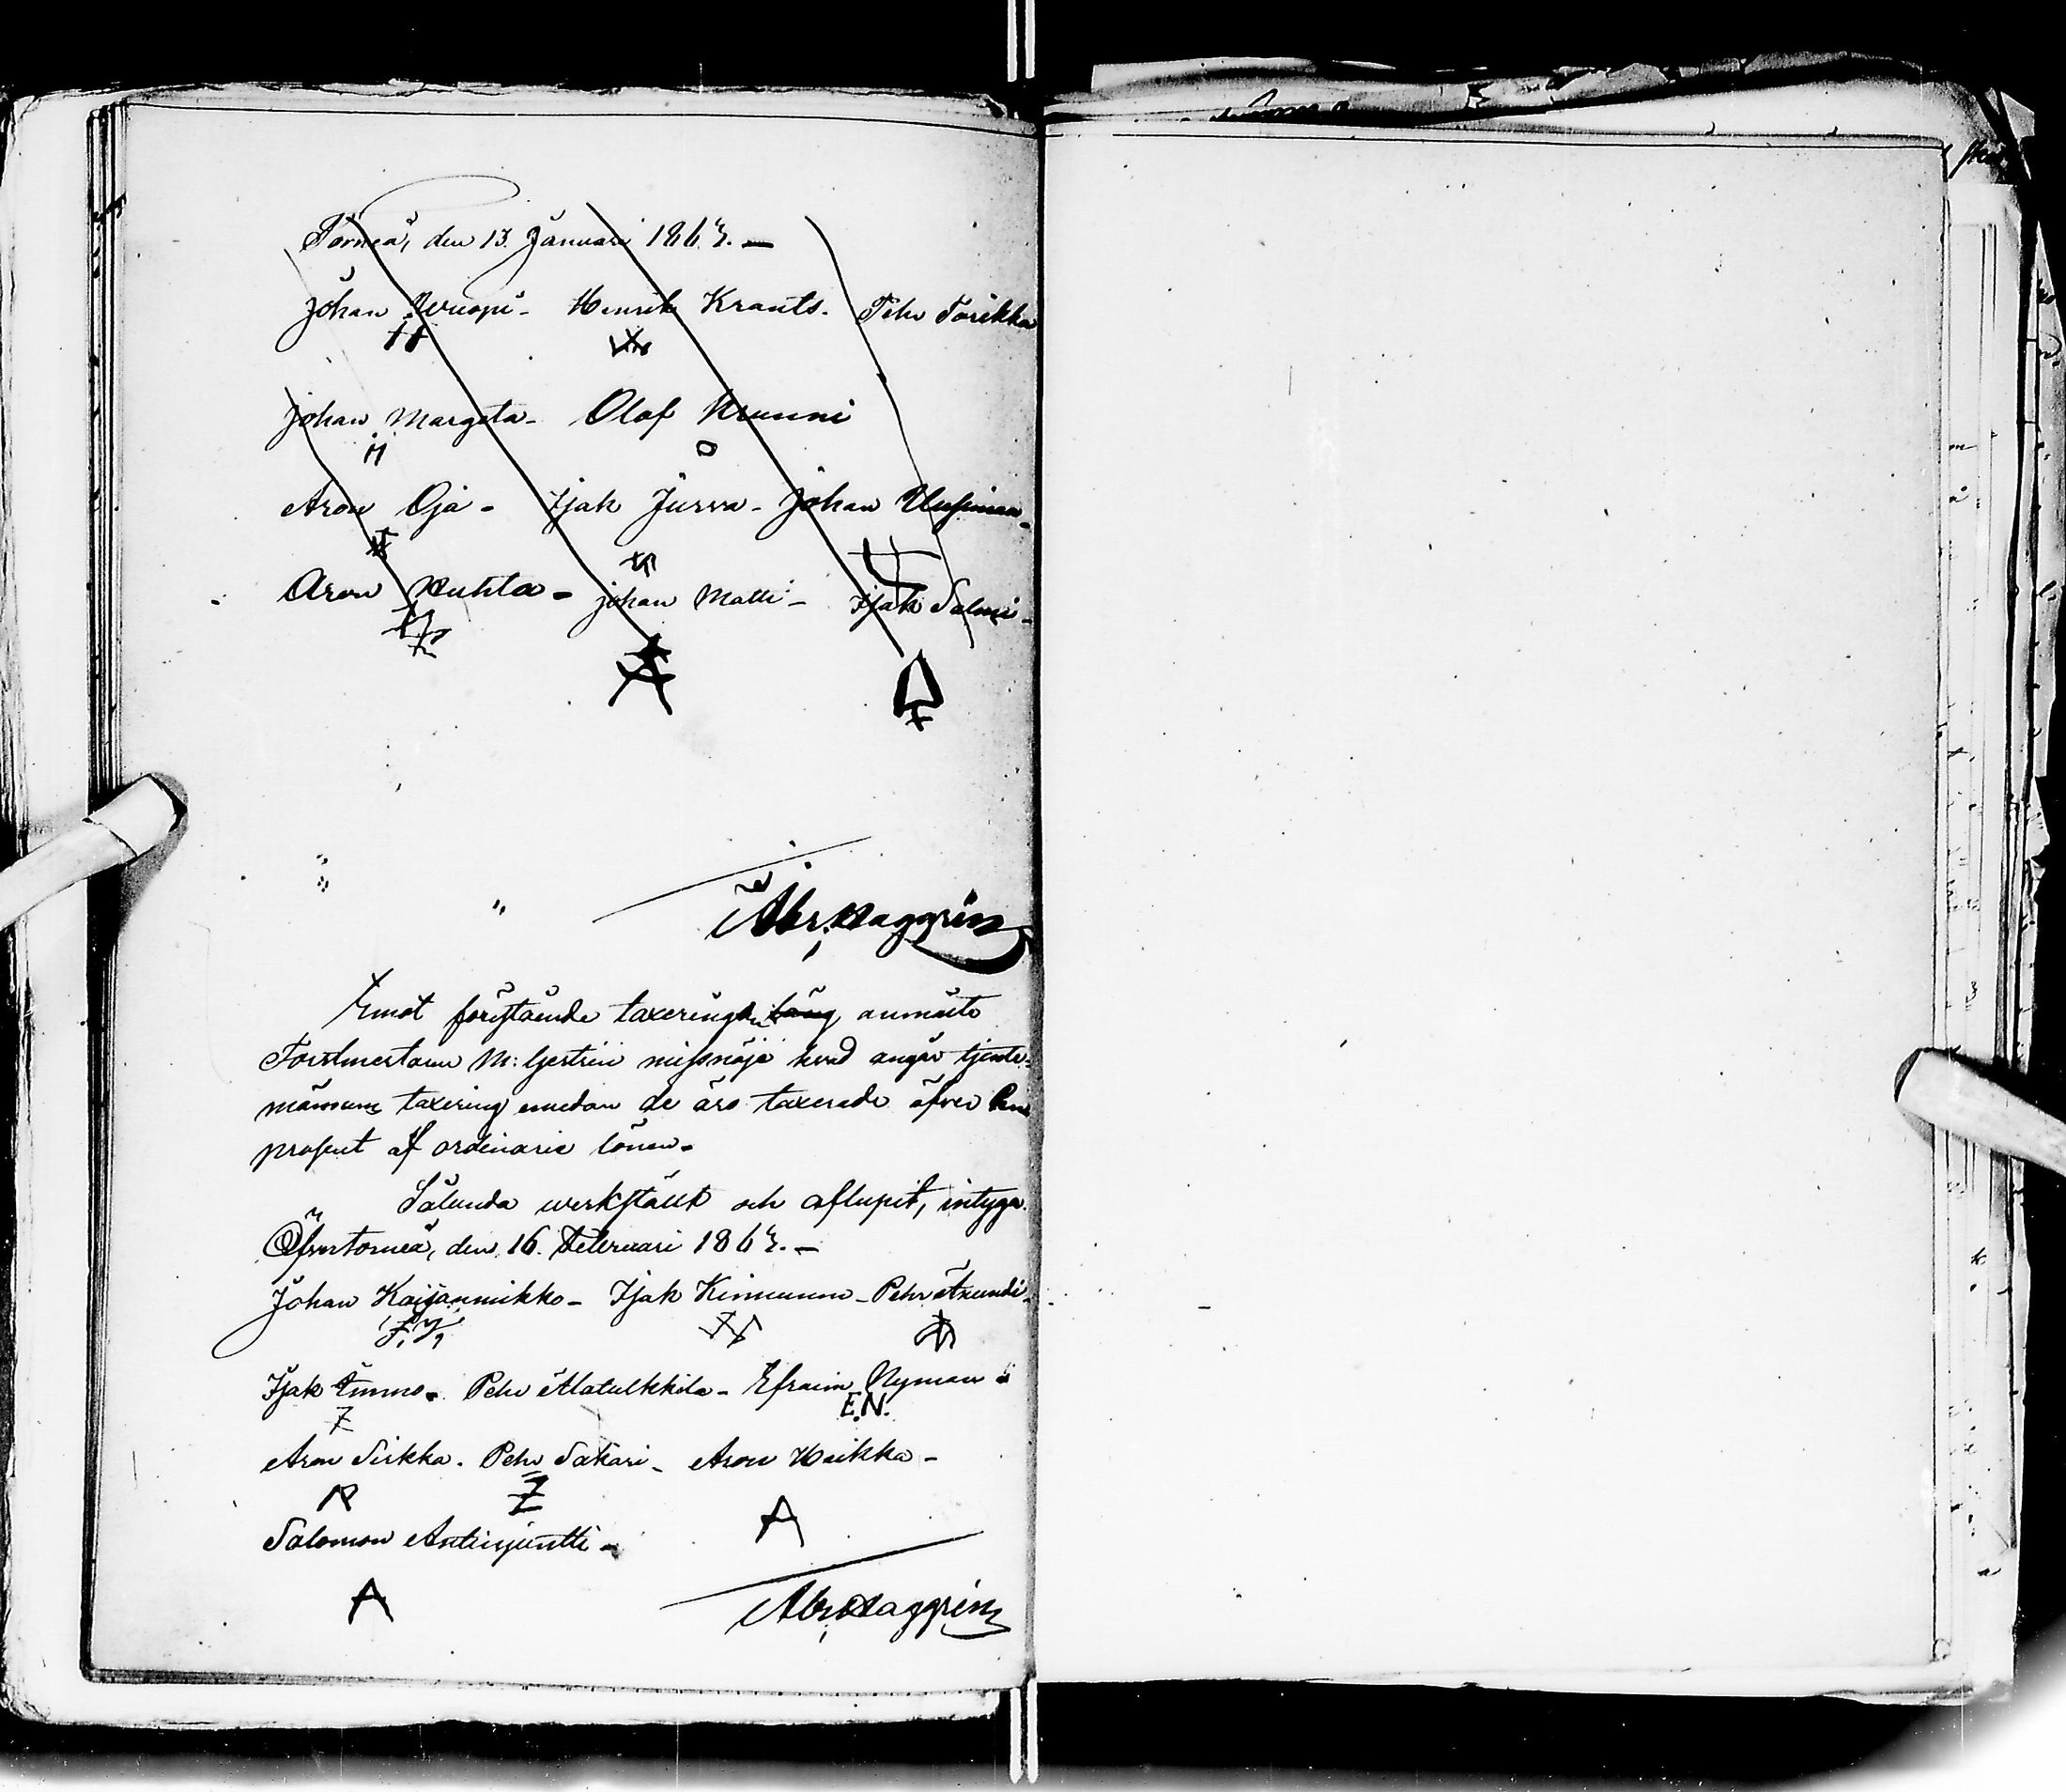 Torneå, den 13. Januari 1867. —
Johan Wuopi - Henrik Krants. Pehr Torikka
Johan Margeta - Olof Krunni
Aron Oja - Isak Jusva - Johan
Aron Huhta - Johan Matti - Isak Salmi -
Abr. Haggrén
Emot förestående taxering anmälte
Forstmestaren M: missnöje hvad angår tjenste-
männens taxering emedan de äro taxerade öfver
prosent af ordinarie lönen -
Sålunda werkstäldt och aflupit, intyga.
Öfvertorneå, den 16. Februari 1867. —
Johan Kaijanmikko - Isak Kinnunen - Pehr
Isak Pehr Alatulkkila - Efraim Nyman
E.N.
Aron Sirkka. Pehr Sakari - Aron Heikka -
A
Salomon Antinjuntti -
A
Abr. Haggrén